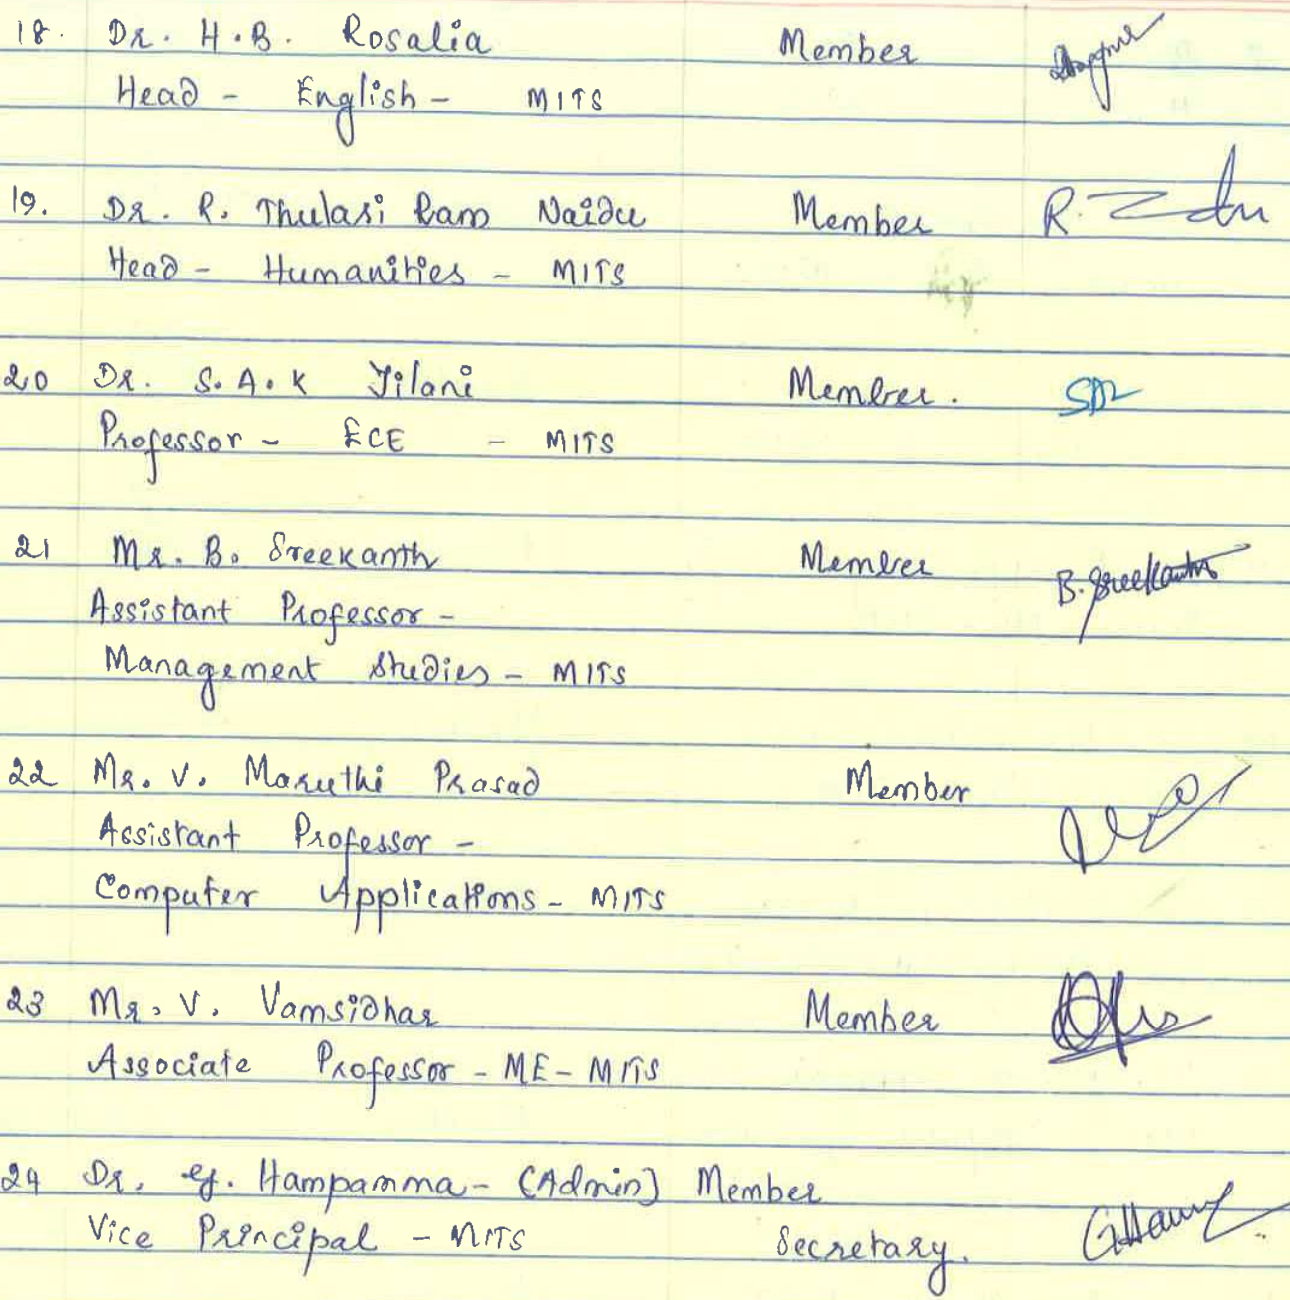 18. Dr. H.B. Rosalia Member
Head - English - MITS
19. Dr. R. Thulasi Ram Naidu Member
Head - Humanities - MITS
20 Dr. S.A.K Jilani Member.
Professor - ECE - MITS
21 Mr. B. Sreekanth Member B. Sreekanth
Assistant Professor -
Management Studies - MITS
22 Mr. V. Maruthi Prasad Member
Assistant Professor -
Computer Applications - MITS
23 Mr. V. Vamsidhar Member
Associate Professor - ME - MITS
24 Dr. G. Hampamma - (Admin) Member
Vice Principal - MITS Secretary.